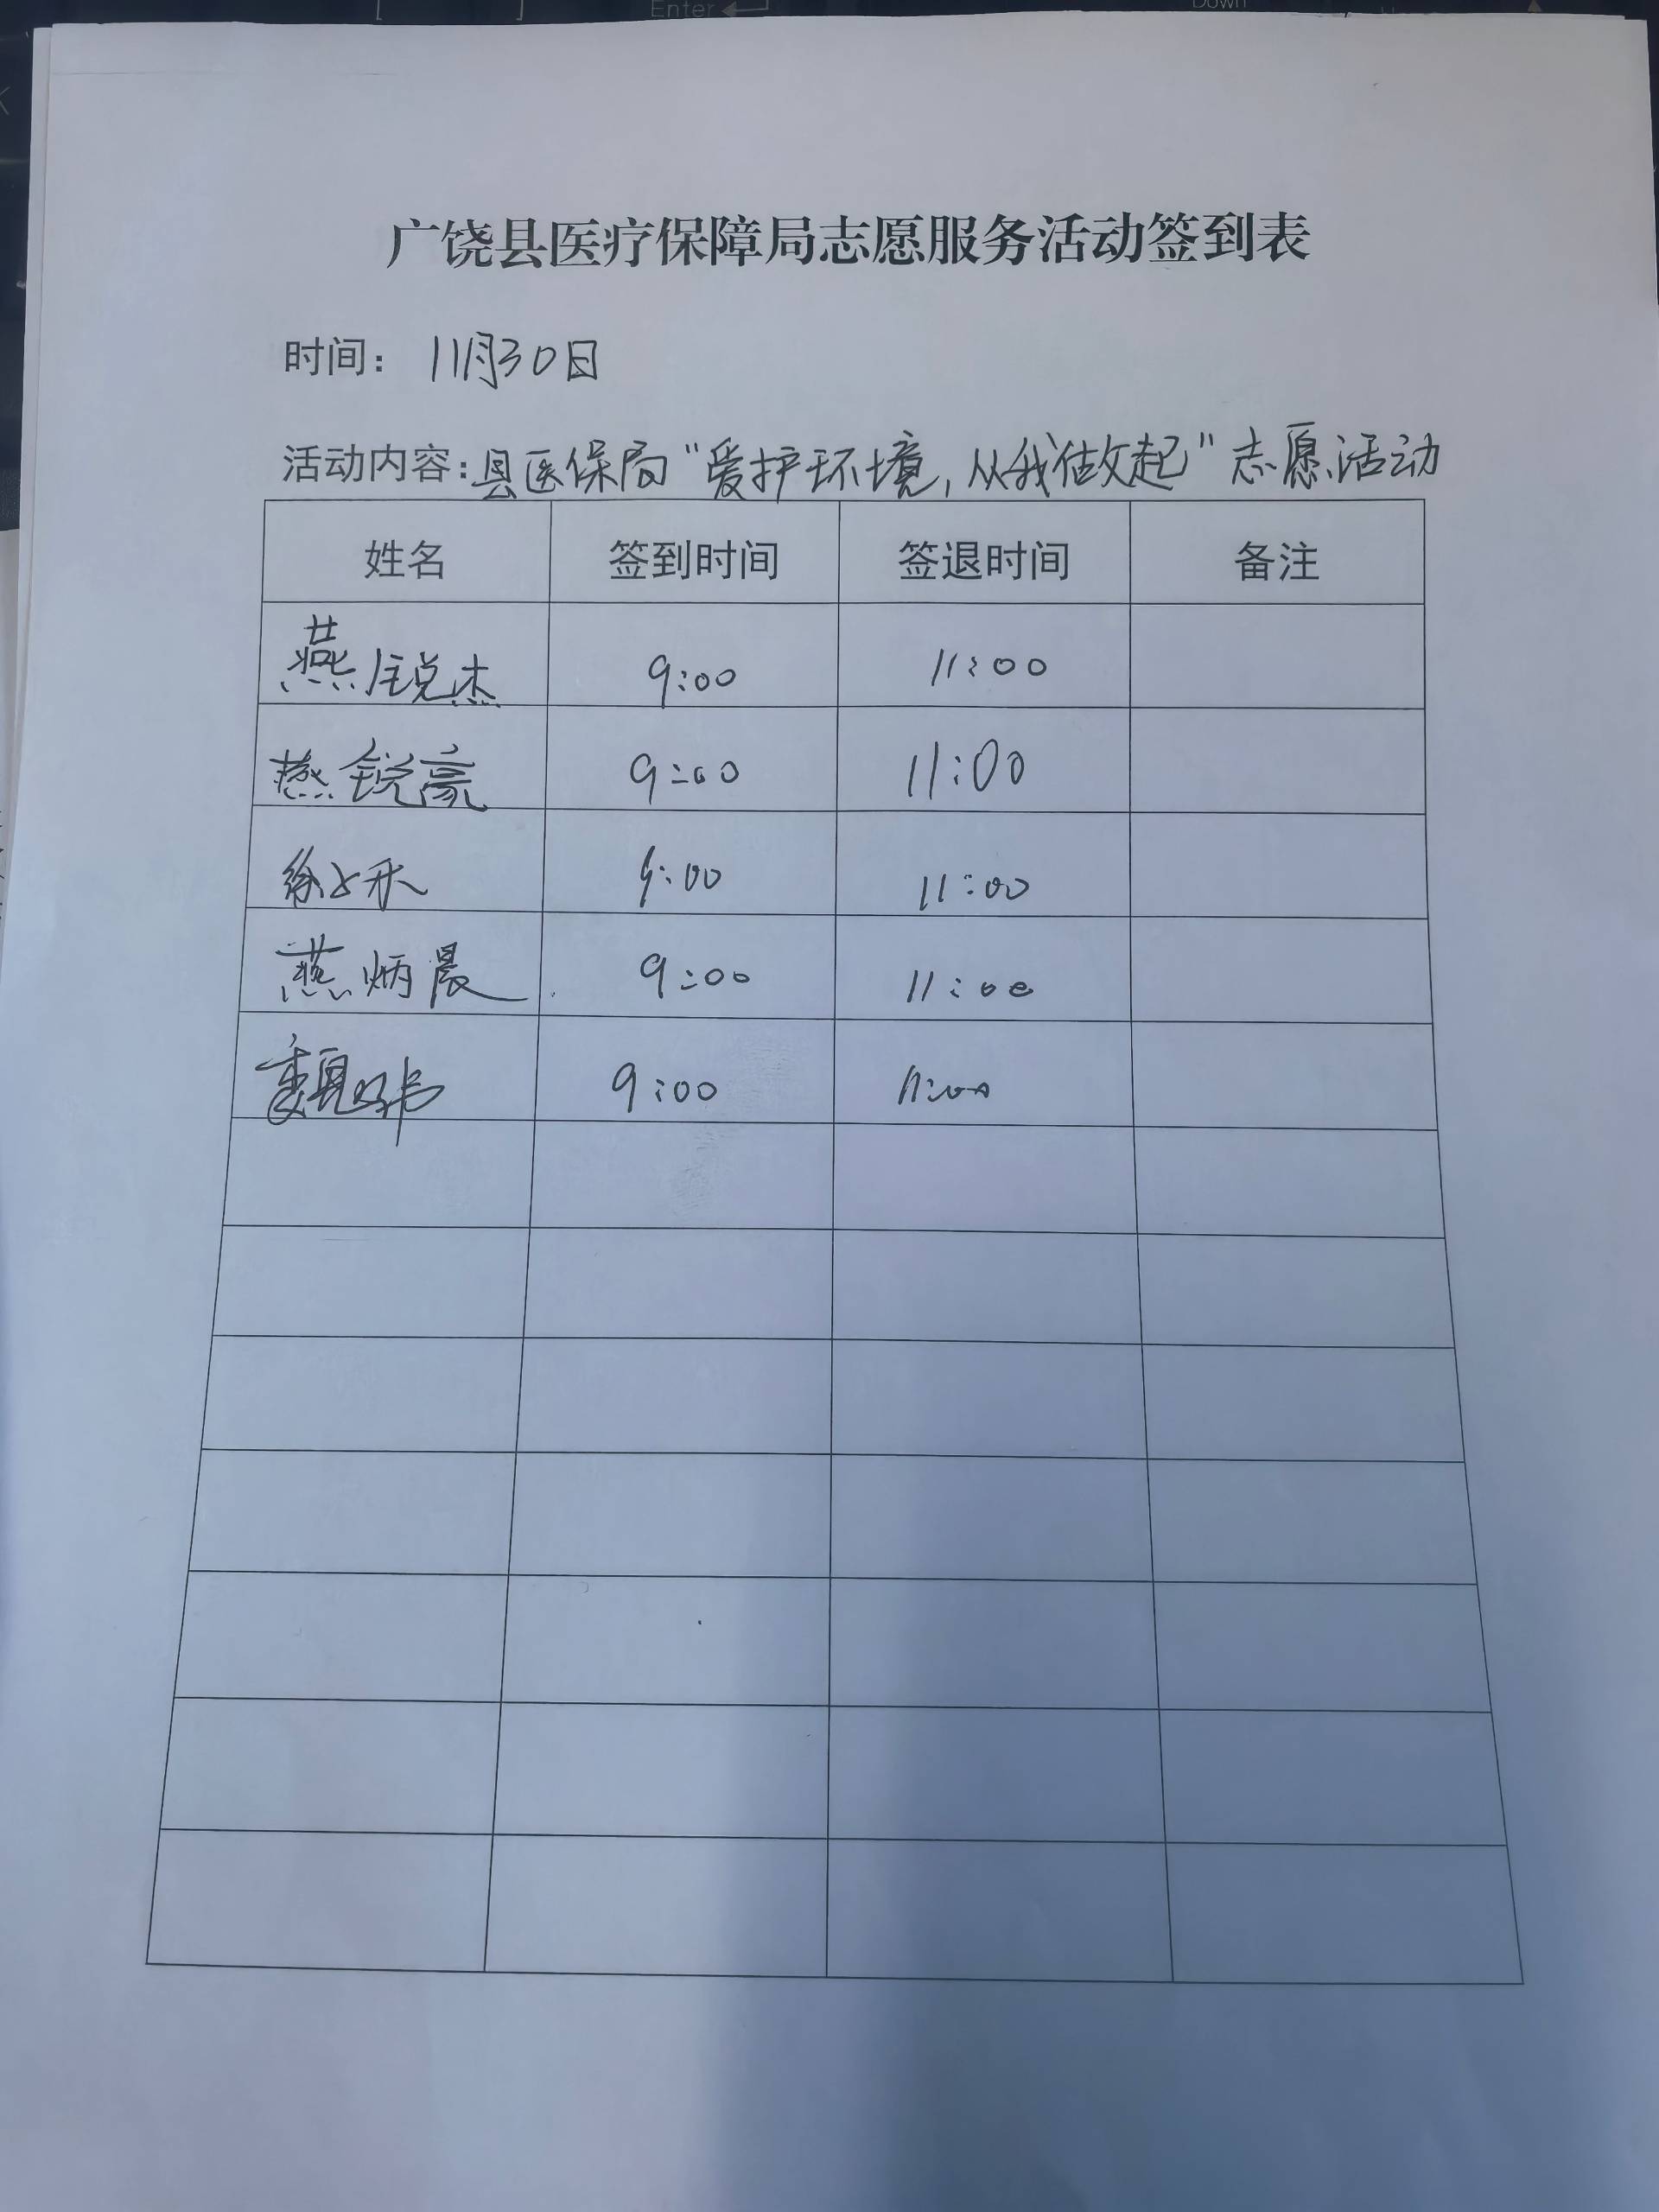 Enter
Down
广饶县医疗保障局志愿服务活动签到表
时间： 11月30日
活动内容：县医保局“爱护环境，从我做起”志愿活动
姓名 签到时间 签退时间 备注
燕锐杰 9:00 11:00
燕锐豪 9:00 11:00
9:00 11:00
燕炳晨 9:00 11:00
9:00 11:00